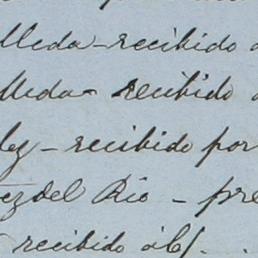 Meda - recibido
Meda - recibido
ley - recibido por
ez del Rio - pre
recibido